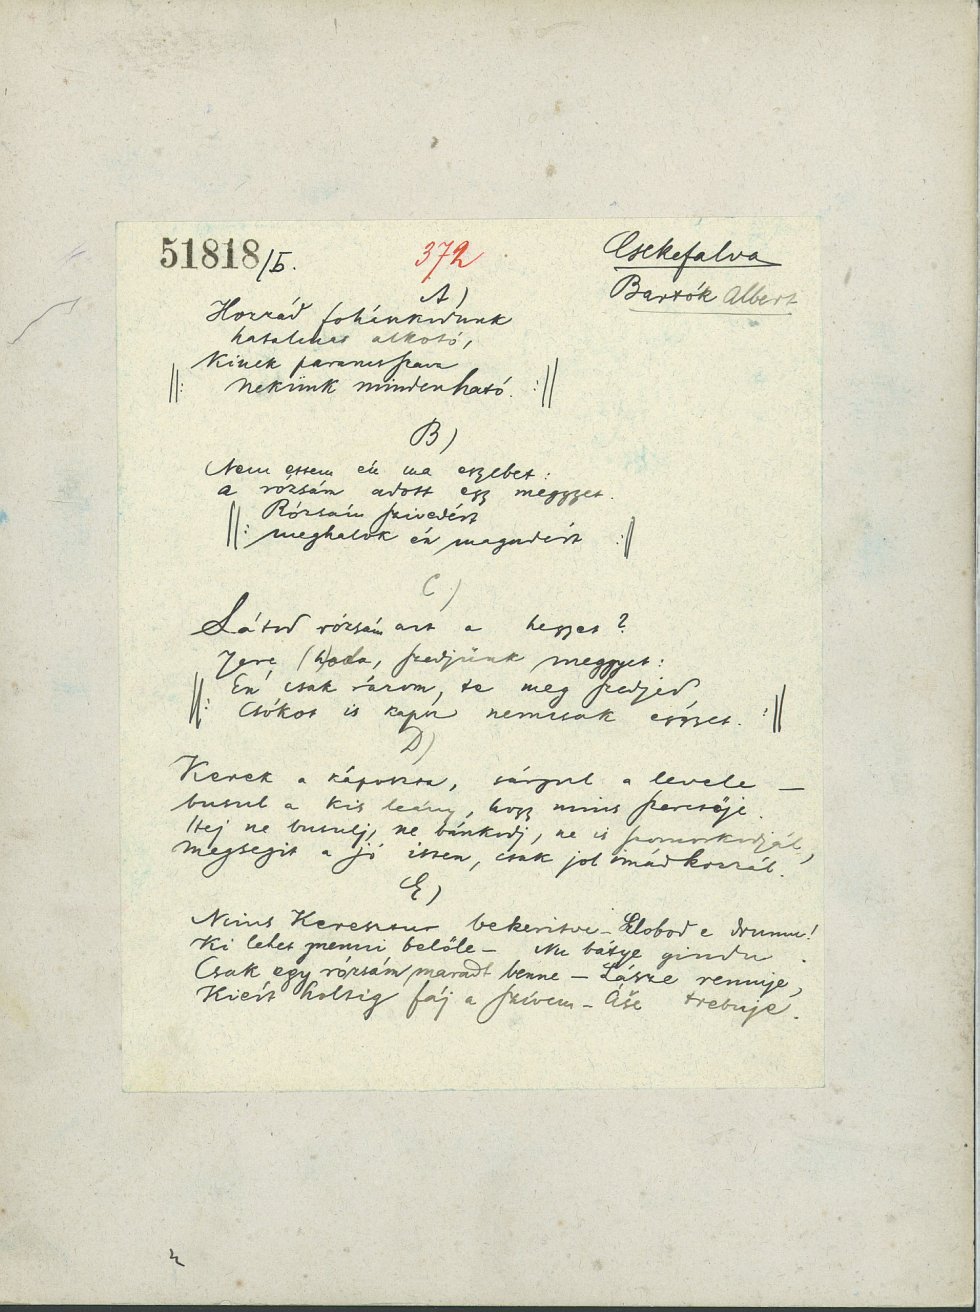 51818/5. 372 Csekefalva
Bartók Albert
A)
Hozzád fohánkodunk
hatalmas alkotó,
Kinek parancsszava
||: Nekünk mindenható. :||
B)
Nem ettem én ma egyebet:
a rózsám adott egy meggyet.
Rózsám szivedért
||: meghalok én magadért :||
C)
Látod rózsám azt a hegyet?
Jere (h)oda, szedjünk meggyet:
Én csak rázom, te meg szedjed
||: Csókot is kapsz nemcsak egyszer. :||
D)
Kerek a káposzta, sárgul a levele —
busul a kis leány, hogy nincs szeretője.
Hej ne busulj, ne bánkodj, ne is szomorkodjál,
megsegit a jó isten, csak jol imádkozzál.
E)
Nincs Keresztur bekeritve – Slobod e drumu!
Ki lehet menni belőle – Nu bátye gindu.
Csak egy rózsám maradt benne – Lásze rennije,
Kiért holtig fáj a szívem – Áse trebuje.